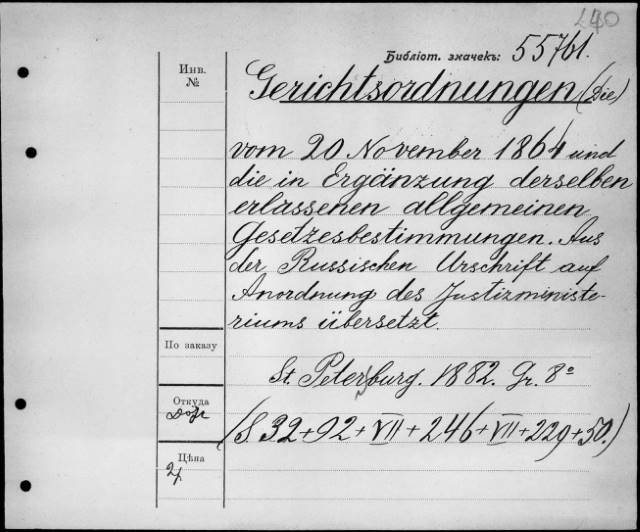 Библіот. значекъ: 55761.
Инв.
№
Gerichtsordnungen (Die)
vom 20 November 1864 und
die in Ergänzung derselben
erlassenen allgemeinen
Gesetzesbestimmungen. Aus
der Russischen Urschrift auf
Anordnung des Justizministe-
riums übersetzt.
По заказу
St. Petersburg. 1882. Gr. 8º
Откуда
(S. 32+92+VII+246+VII+229+50.)
Цѣна